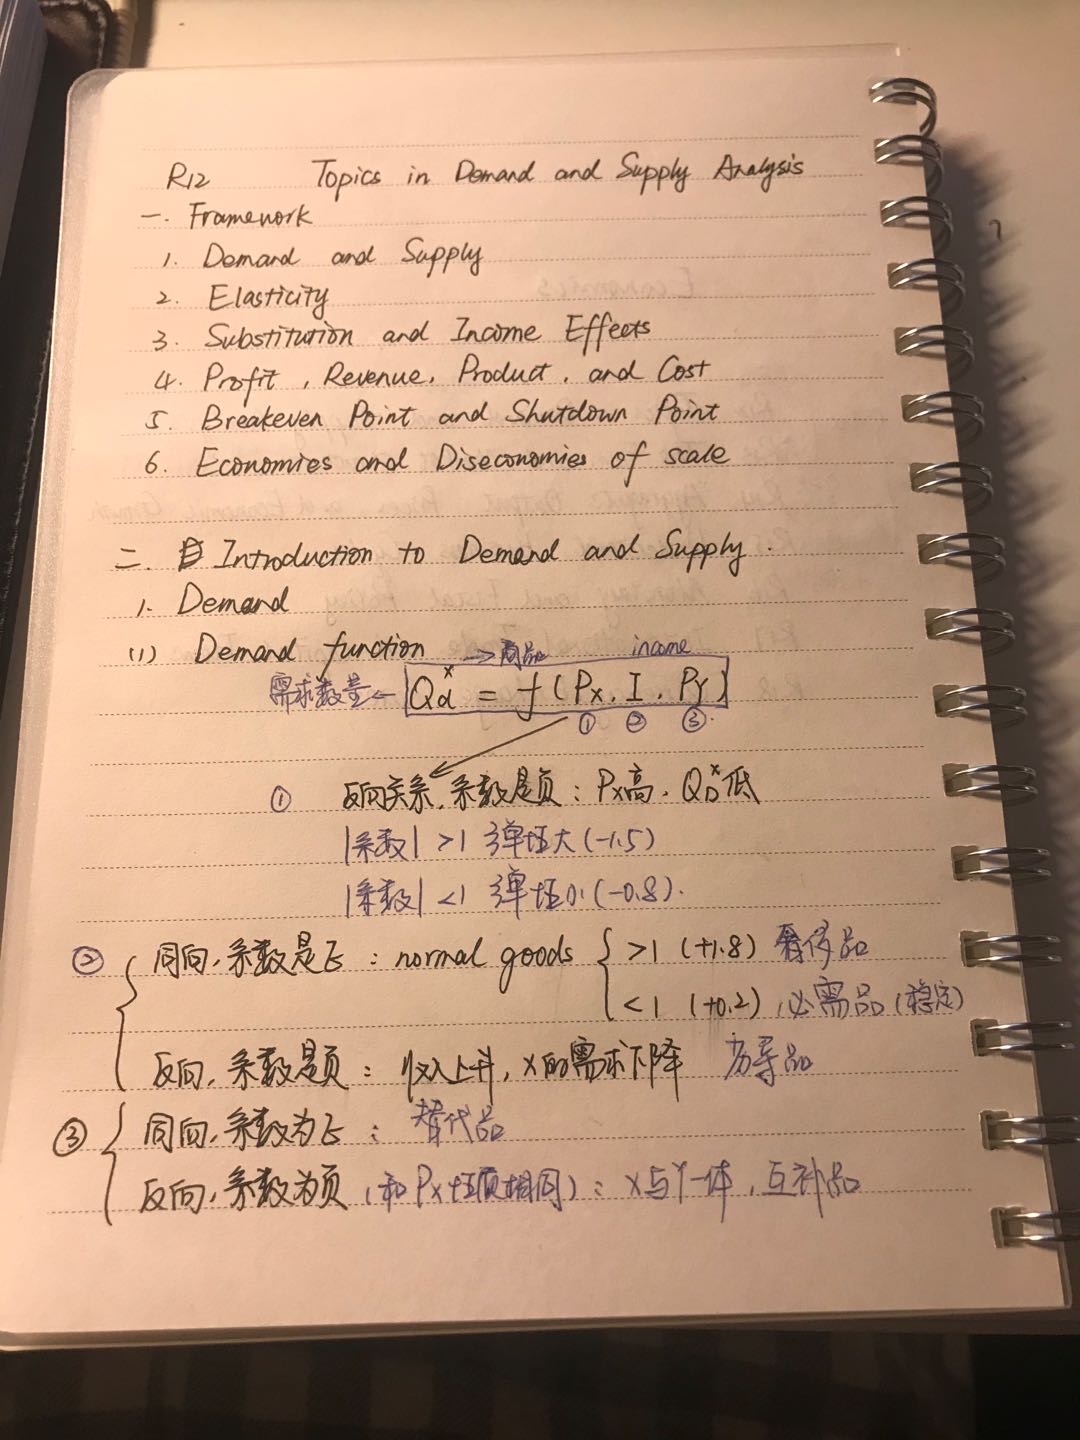 R12 Topics in Demand and Supply Analysis
一. Framework
1. Demand and Supply
2. Elasticity
3. Substitution and Income Effects
4. Profit, Revenue, Product, and Cost
5. Breakeven Point and Shutdown Point
6. Economies and Diseconomies of scale
二. Introduction to Demand and Supply.
1. Demand
(1) Demand function
→商品 income
需求数量← Qd^x = f(Px, I, PY)
① ② ③
① 反向关系,系数是负:Px高,QD^x低
|系数| >1 弹性大(-1.5)
|系数| <1 弹性小(-0.8).
② 同向,系数是正:normal goods >1 (+1.8) 奢侈品
<1 (+0.2) 必需品(稳定)
反向,系数是负:收入上升,X的需求下降 劣等品
③ 同向,系数为正:替代品
反向,系数为负(和Px性质相同):X与Y一体,互补品